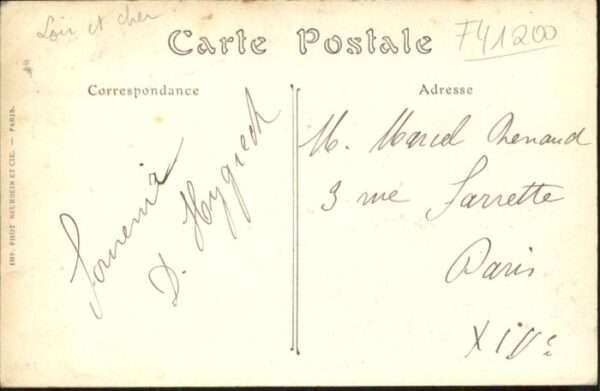 Loir et cher
F41200
Carte Postale
Correspondance
Adresse
Souvenir
D. Hygieck
M. Marcel Renaud
3 rue Sarrette
Paris
XIVe
IMP. PHOT. NEURDEIN ET CIE. — PARIS.